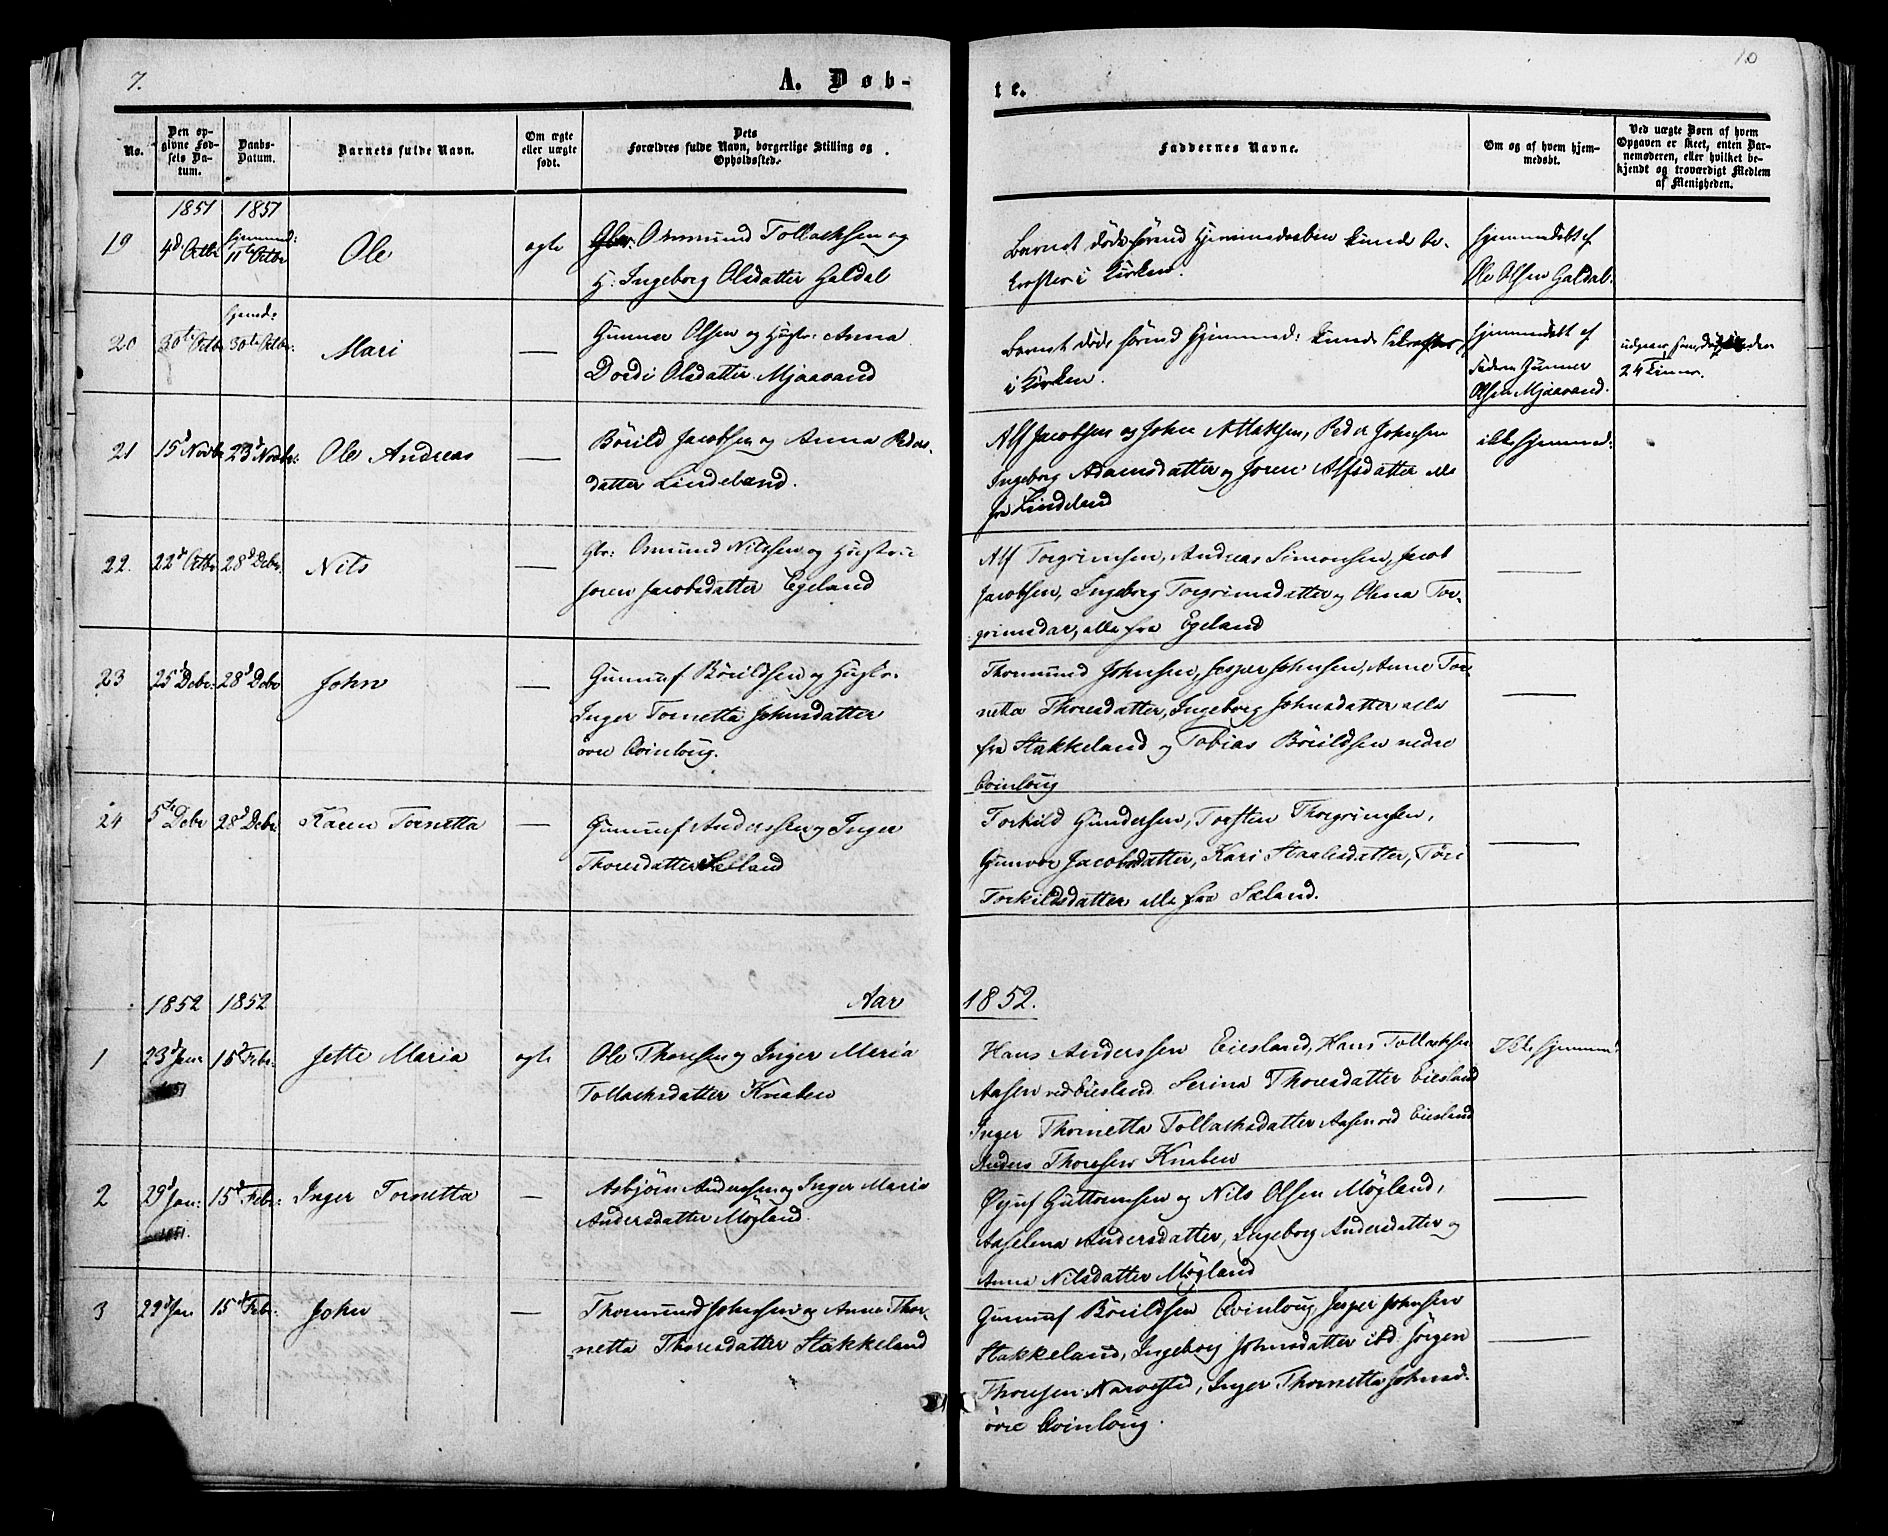 7.
A. Døb-
te.
10
No.
Den op-
givne Fød-
sels Da-
tum.
Daabs-
Datum.
Barnets fulde Navn.
Om ægte
eller uægte
født.
Dets
Forældres fulde Navn, borgerlige Stilling og
Opholdssted.
Faddernes Navne.
Om og af hvem hjem-
medøbt.
Ved uægte Børn af hvem
Opgaven er skeet, enten Bar-
nemoderen, eller hvilket be-
kjendt og troværdigt Medlem
af Menigheden.
1851 1851
19 4d Octbr hjemmed: 11te Octbr Ole ægte Gbr: Osmund Tollachsen og
H: Ingeborg Olsdatter Galdal
Barnet døde førend Hjemmedaaben kunde be-
kræftes i Kirken.
Hjemmedøbt af
Ole Olsen Galdal.
20 30te Octbr hjemd: 30te Octbr: Mari — Gunner Olsen og Hustr: Anna
Dordi Olsdatter Mjaavand
Barnet døde førend Hjemmed: kunde bekræftes
i Kirken.
hjemmedøbt af
Faderen Gunner
Olsen Mjaavand.
24 Timer.
21 15d Novbr 23d Novbr: Ole Andreas — Børild Jacobsen og Anna Peders-
datter Lindeland.
Alf Jacobsen og John Attaksen, Peder Johnsen
Ingeborg Adamsdatter og Joren Alfsdatter alle
fra Lindeland
ikke hjemmed:
22. 22d Octbr 28d Debr. Nils — Gbr: Osmund Nilssen og Hustr:
Joren Jacobsdatter Egeland
Alf Torgrimsen, Andreas Simonsen, Jacob
Jacobsen, Ingeborg Torgrimsdatter og Olena Tor-
grimsdar, alle fra Egeland
—
23 25d Debr: 28d Debr John — Gunnuf Börildsen og Hustr:
Inger Tornetta Johnsdatter
övre Qvinloug.
Thormund Johnsen, Jesper Johnsen, Anne Tor-
netta Thoresdatter, Ingeborg Johnsdatter alle
fra Stakkeland og Tobias Börildsen nedre
Qvinloug
—
24 5te Debr 28d Debr Karen Tornetta — Gunnuf Anderssen og Inger
Thoresdatter Sæland
Torkild Gundersen, Torsten Thorgrimsen,
Gunvor Jacobsdatter, Kari Staalesdatter, Töri
Torkildsdatter alle fra Sæland.
—
1852 1852 Aar 1852.
1 23d Jan: 15d Febr: Jette Maria ægte Ole Thoresen og Inger Maria
Tollachsdatter Knaben
Hans Anderssen Eiesland, Hans Tollachsen
Aasen ved Eiesland Serina Thoresdatter Eiesland
Inger Thornetta Tollachsdatter Aasen ved Eiesland
Anders Thoresen Knaben
Ikke hjemmd:
2 29d Jan: 15d Febr: Inger Tornetta — Asbjörn Anderssen og Inger Maria
1851. Andersdatter Mögland.
Öynf Guttormsen og Nils Olsen Mögland,
Aaselena Andersdatter, Ingeborg Andersdatter og
Anna Nilsdatter Mögland
—
3 29d Jan 15d Febr: John — Thormund Johnsen og Anne Thor-
netta Thoresdatter Stakkeland
Gunnuf Börildsen Qvinloug, Jesper Johnsen
Stakkeland, Ingeborg Johnsdatter ibd. Jörgen
Thoresen Narvestad, Inger Thornetta Johnsd.
övre Qvinloug.
—